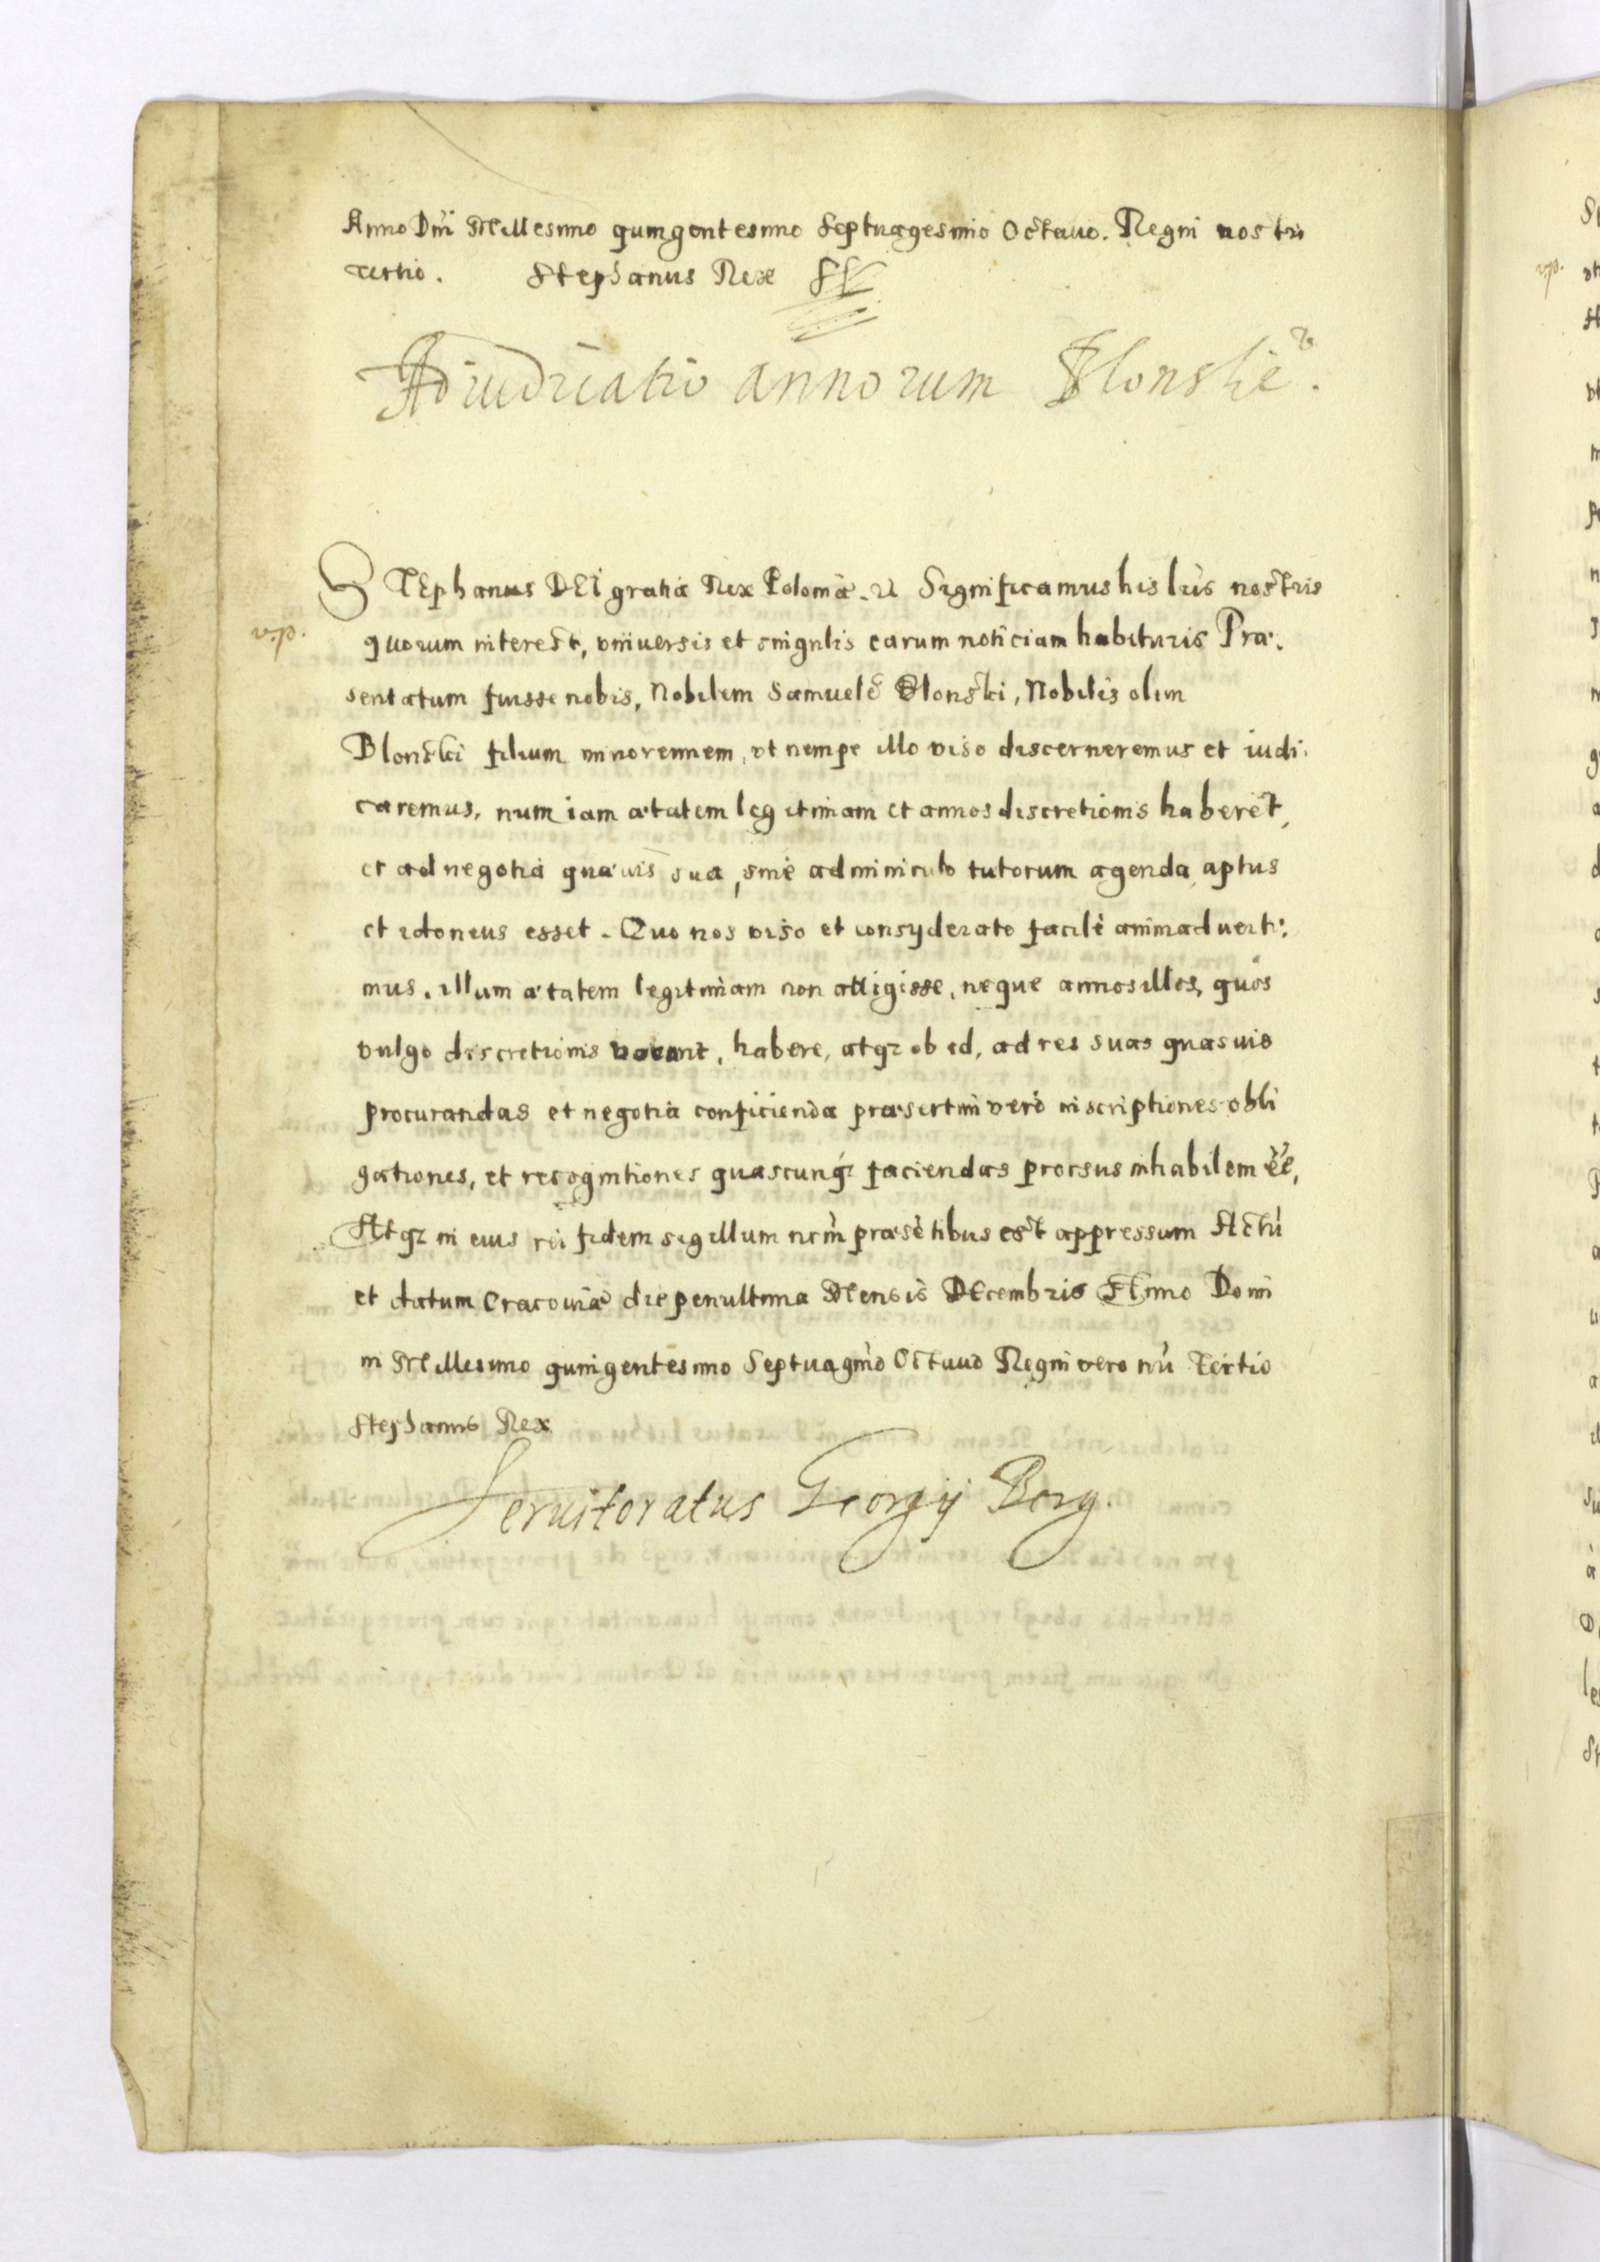 Anno Dnī Millesimo quingentesimo Septuagesimo Octauo. Regni nostri
tertio. Stephanus Rex
Adiudicatio annorum Blonskie
STEphanus DEI gratia Rex Poloniæ. Significamus his lr̄is nostris
v.p.
quorum interest, vniuersis et singulis earum noticiam habituris Præ.
sentatum fuisse nobis, Nobilem Samuelē Blonski, Nobilis olim
Blonski filium minorennem, vt nempe illo viso discerneremus et iudi.
caremus, num iam ætatem legitimam et annos discretionis haberet,
et ad negotia quæuis sua, sine adminiculo tutorum agenda, aptus
et idoneus esset. Quo nos viso et consyderato facilè animaduerti:
mus, illum ætatem legitimam non attigisse, neque annos illos, quos
vulgo discretionis vocant, habere, atqz ob id, ad res suas quasuis
procurandas et negotia conficienda præsertim verò inscriptiones obli
gationes, et recognitiones quascunqz faciendas prorsus inhabilem ēē,
Atqz in eius rei fidem sigillum nr̄m præsētibus est appressum Actū
et datum Cracouiæ die penultima Mensis DEcembris Anno Domi
ni Millesimo quingentesimo Septuagmo Octauo Regni vero nr̄i tertio
Stephanus Rex
Seruitoratus Georgij Borg.
v.p.